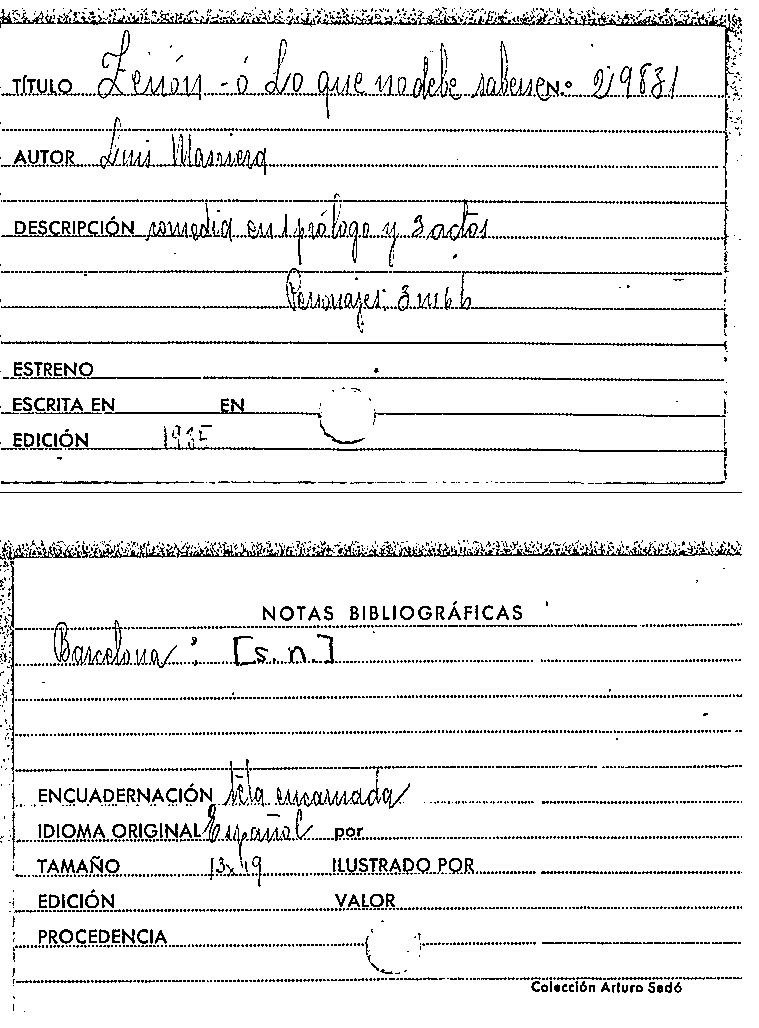 TÍTULO Zenón - ó Lo que no debe saberse N.º 29831
AUTOR Luis Masriera
DESCRIPCIÓN comedia en 1 prólogo y 3 actos
Personajes: 3 m 6 h
ESTRENO
ESCRITA EN EN
EDICIÓN 1935
NOTAS BIBLIOGRÁFICAS
Barcelona : [s.n.]
ENCUADERNACIÓN tela encarnada
IDIOMA ORIGINAL Español por
TAMAÑO 13x19 ILUSTRADO POR
EDICIÓN VALOR
PROCEDENCIA
Colección Arturo Sedó